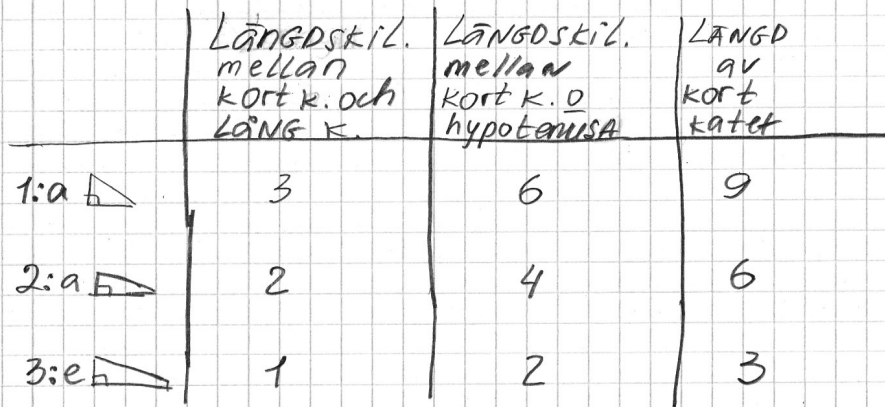 LÄNGDSKIL.
mellan
kort k. och
LÅNG K.
LÄNGDSKIL.
mellan
kort k. o
hypotenusa
LÄNGD
av
kort
katet
1:a 3 6 9
2:a 2 4 6
3:e 1 2 3